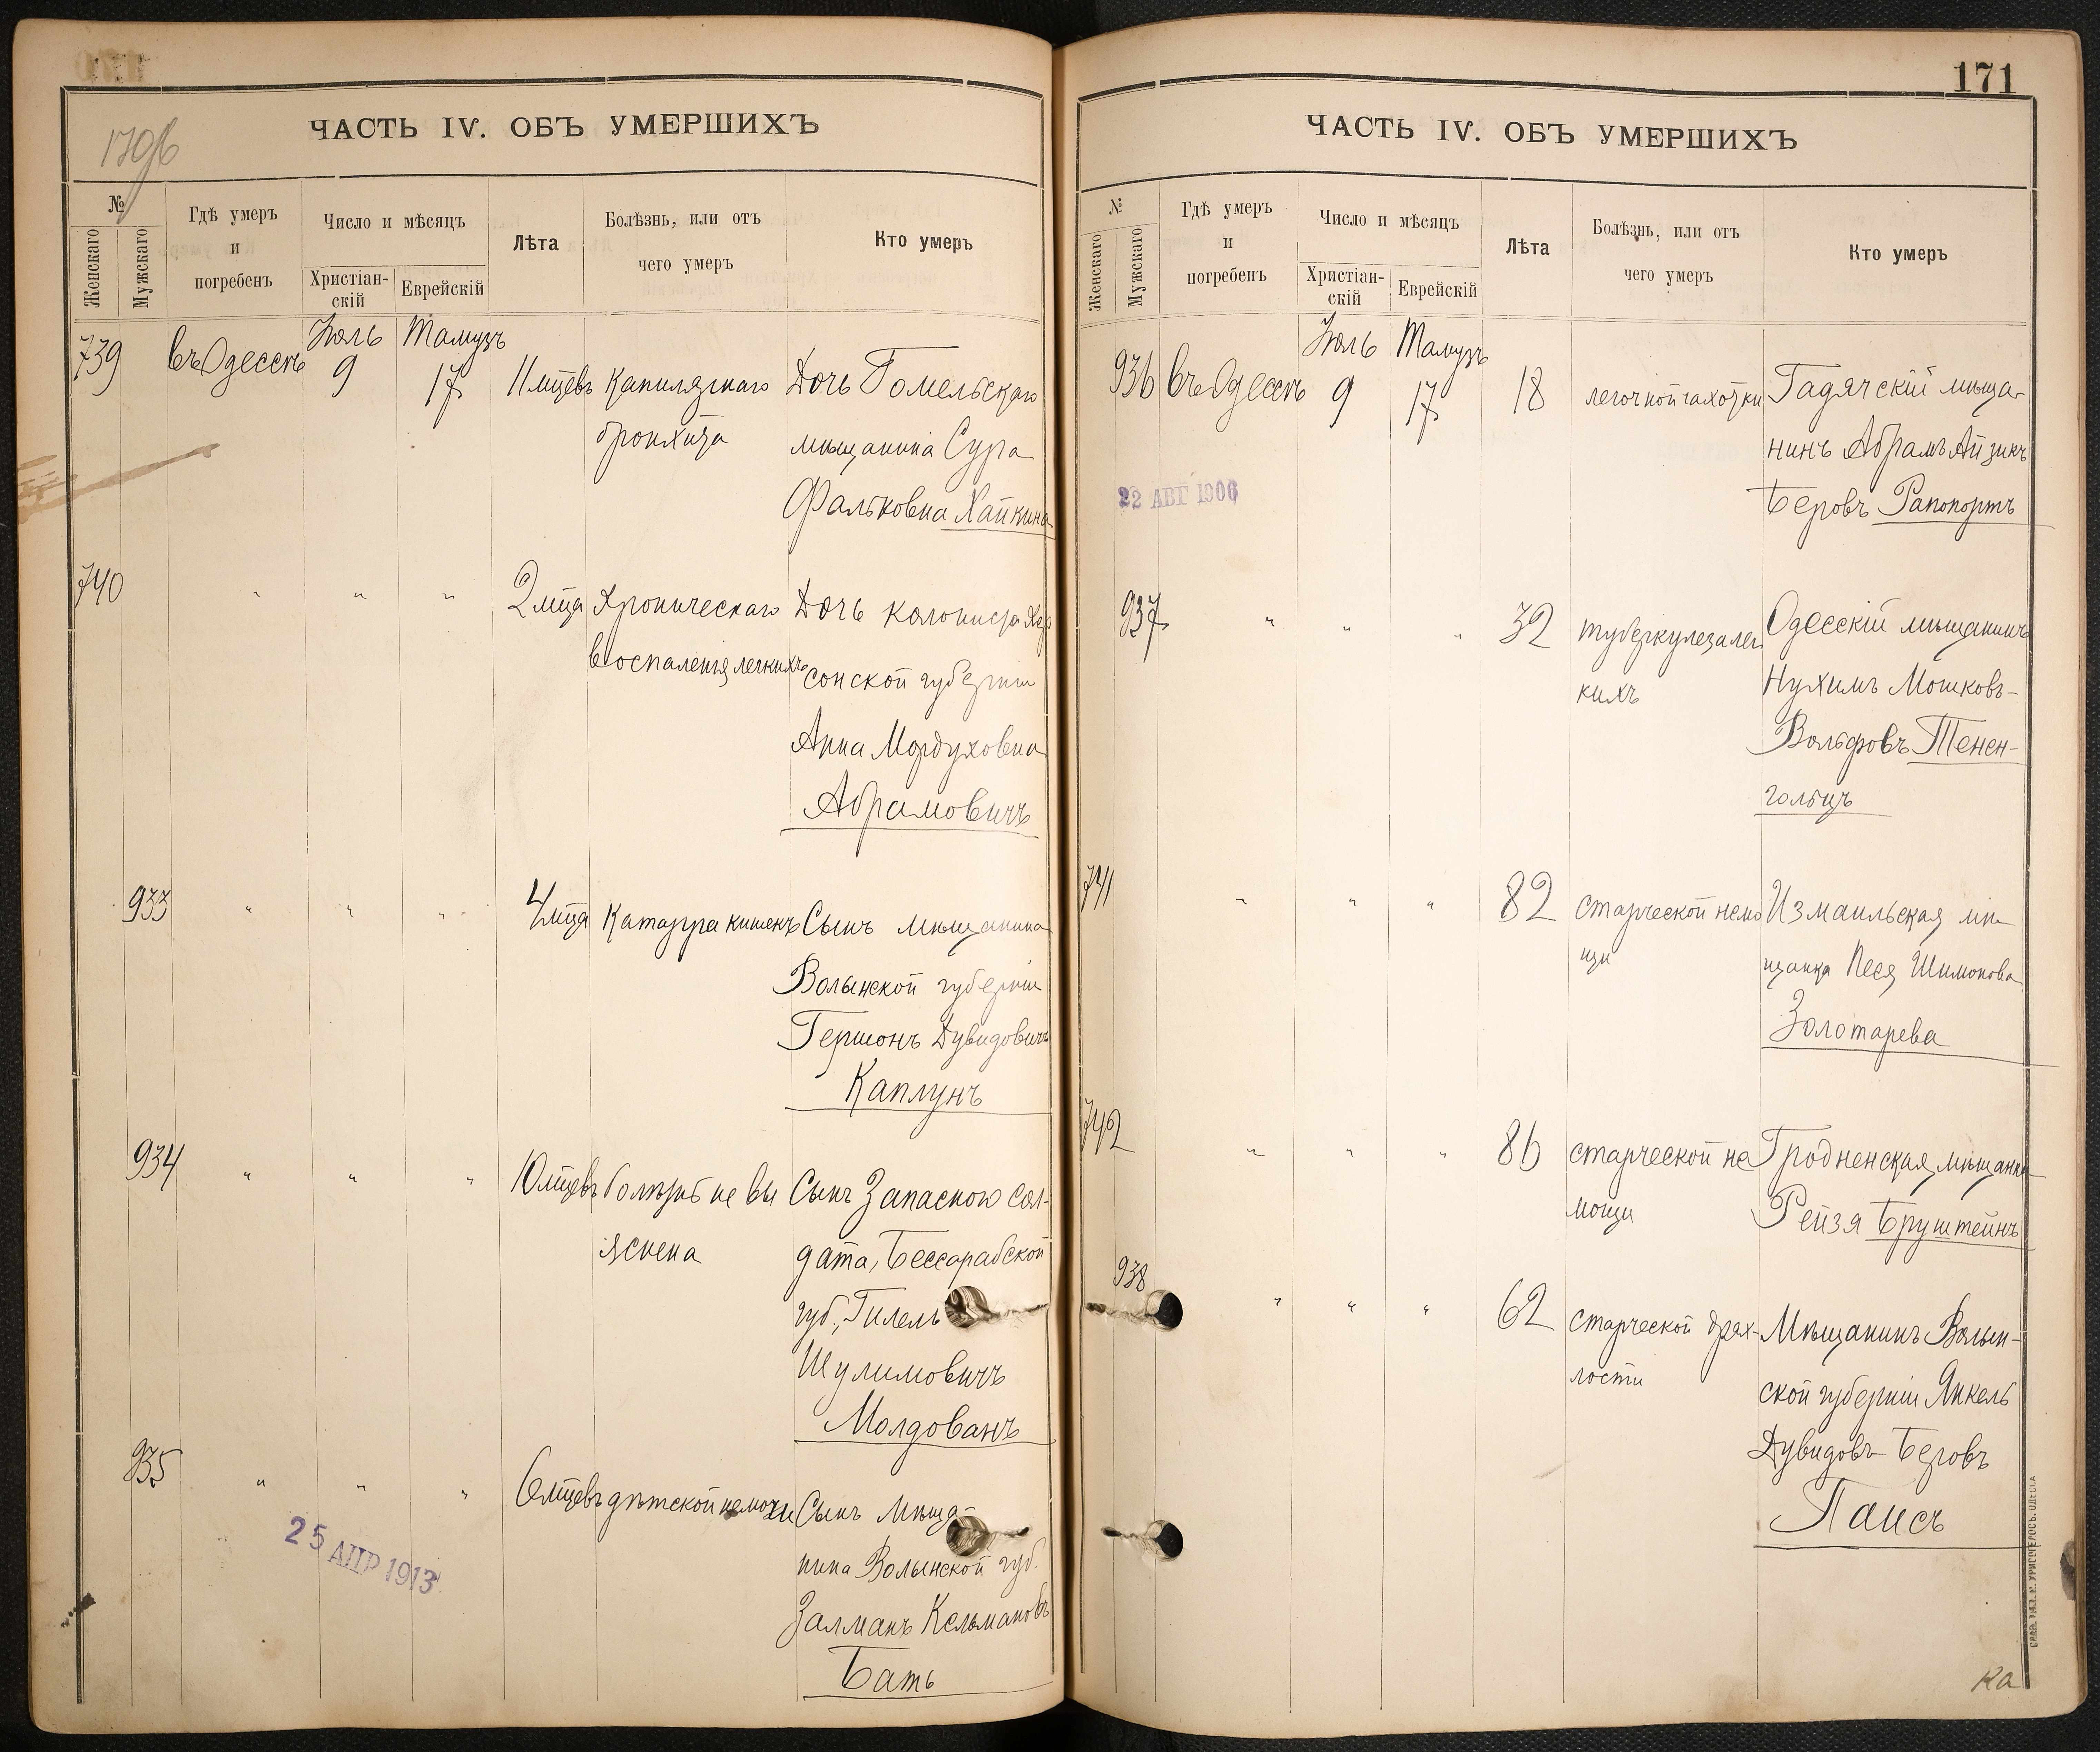 170б
ЧАСТЬ IV. ОБЪ УМЕРШИХЪ
№
Женскаго
Мужскаго
Гдѣ умеръ
и
погребенъ
Число и мѣсяцъ
Христіан-
скій
Еврейскій
Лѣта
Болѣзнь, или отъ
чего умеръ
Кто умеръ
739 въ Одессѣ Іюль 9 Тамузъ 17 11 мцевъ Капилярнаго Дочь Гомельскаго
бронхита мѣщанина Сура
Фальковна Хайкина
740 " " " 2 мца Хроническаго Дочь колониста Хер
воспаленія легкихъ сонской губерніи
Анна Мордуховна
Абрамовичъ
933 " " " 4 мца Катарра кишекъ Сынъ мѣщанина
Волынской губерніи
Гершонъ Дувидовичъ
Каплунъ
934 " " " 10 мцевъ болѣзнь не вы Сынъ Запасного сол-
яснена дата, Бессарабской
губ., Гилель
Шулимовичъ
Молдованъ
935 " " " 6 мцевъ дѣтской немочи Сынъ Мѣща-
нина Волынской губ.
Залманъ Кельмановъ
Бать
25 АПР 1913
171
ЧАСТЬ IV. ОБЪ УМЕРШИХЪ
№
Женскаго
Мужскаго
Гдѣ умеръ
и
погребенъ
Число и мѣсяцъ
Христіан-
скій
Еврейскій
Лѣта
Болѣзнь, или отъ
чего умеръ
Кто умеръ
936 въ Одессѣ Іюль 9 Тамузъ 17 18 легочной чахотки Гадячскій мѣща-
нинъ Абрамъ Айзикъ
Беровъ Рапопортъ
22 АВГ 1906
937 " " " 32 туберкулеза лег Одесскій мѣщанинъ
кихъ Нухимъ Мошковъ-
Вольфовъ Тенен-
гольцъ
741 " " " 82 старческой немо Измаильская мѣ
щи щанка Песя Шимонова
Золотарева
742 " " " 86 старческой не Гродненская мѣщанка
мощи Рейзя Бруштейнъ
938 " " " 62 старческой дрях- Мѣщанинъ Волын-
лости ской губерніи Янкель
Дувидовъ Беровъ
Паисъ